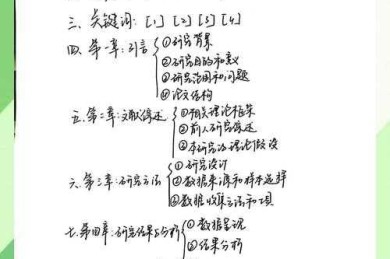 三、关键词: [1] [2] [3] [4]
四、第一章: 引言
①研究背景
②研究目的和意义
③研究范围和问题
④论文结构
五、第二章: 文献综述
①相关理论框架
②前人研究综述
③本研究的理论假设
六、第三章: 研究方法
①研究设计
②数据来源和样本选择
③数据收集方法和工具
七、第四章: 研究结果与分析
①数据呈现
②结果分析